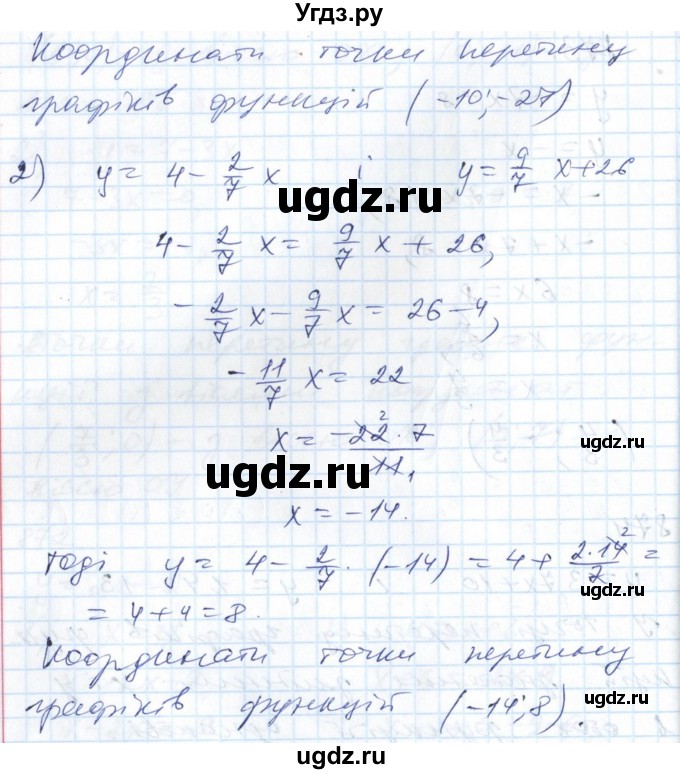 Угдз.ру
Координати точки перетину
графіків функцій (-10;-27)
2) y = 4 - 2/7 x і y = 9/7 x + 26
4 - 2/7 x = 9/7 x + 26,
- 2/7 x - 9/7 x = 26 - 4,
- 11/7 x = 22
x = -22 2 · 7 / 11 1
x = -14.
Тоді y = 4 - 2/7 · (-14) = 4 + 2·14 2 / 7 =
= 4 + 4 = 8.
Координати точки перетину
графіків функцій (-14; 8).
ugdz.ru
ugdz.ru
ugdz.ru
ugdz.ru
ugdz.ru
ugdz.ru
ugdz.ru
ugdz.ru